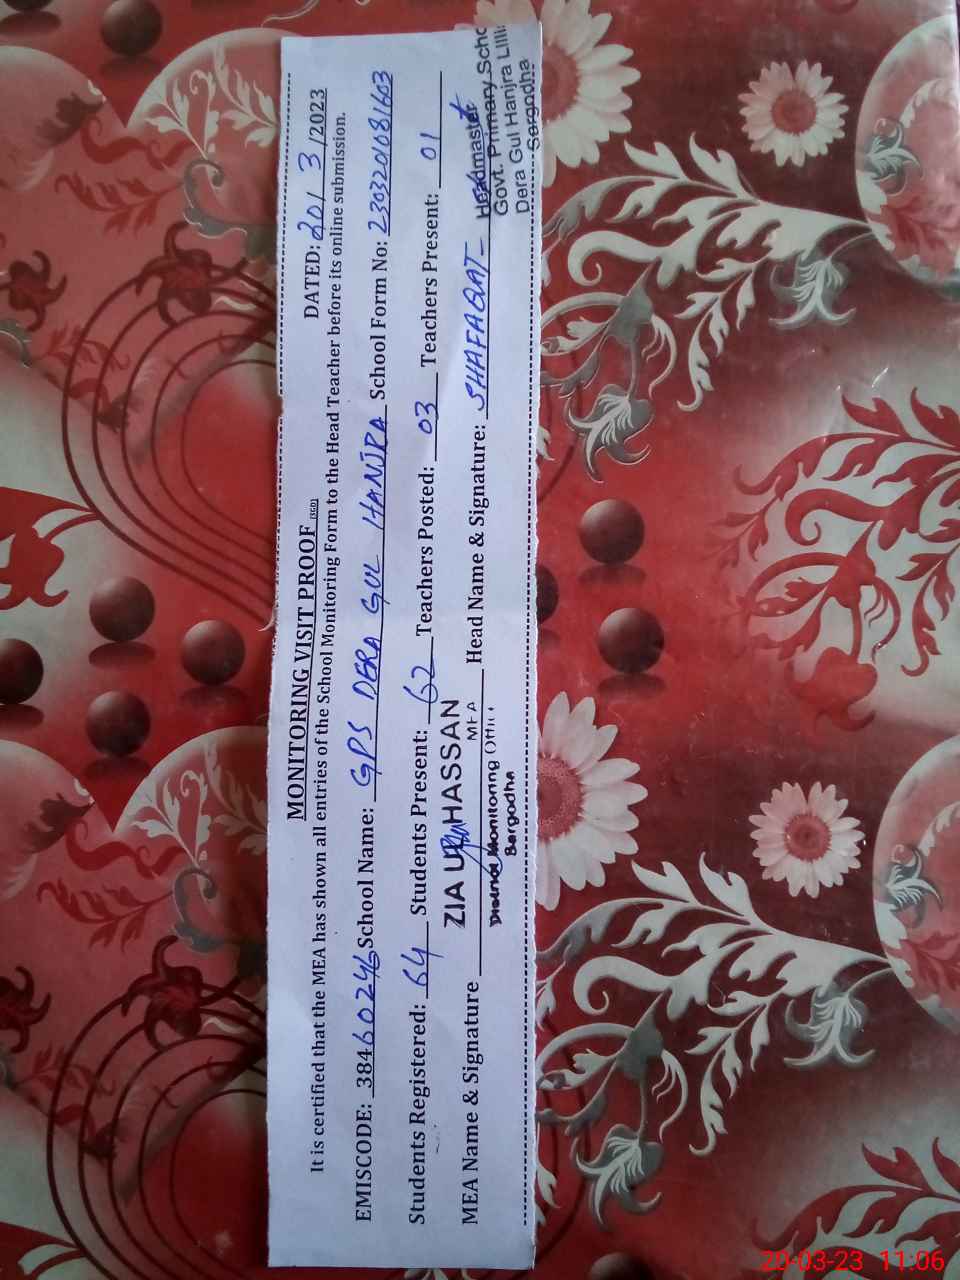 MONITORING VISIT PROOF (SGD)
DATED: 20/ 3 /2023
It is certified that the MEA has shown all entries of the School Monitoring Form to the Head Teacher before its online submission.
EMISCODE: 38460246 School Name: GPS DERA GUL HANJRA School Form No: 230320108/603
Students Registered: 64 Students Present: 62 Teachers Posted: 03 Teachers Present: 01
MEA Name & Signature ZIA UL HASSAN Head Name & Signature: SHAFAQAT
MEA
District Monitoring Office
Sargodha
Headmaster
Govt. Primary Scho
Dera Gul Hanjra Lilli
Sargodha
20-03-23 11:06